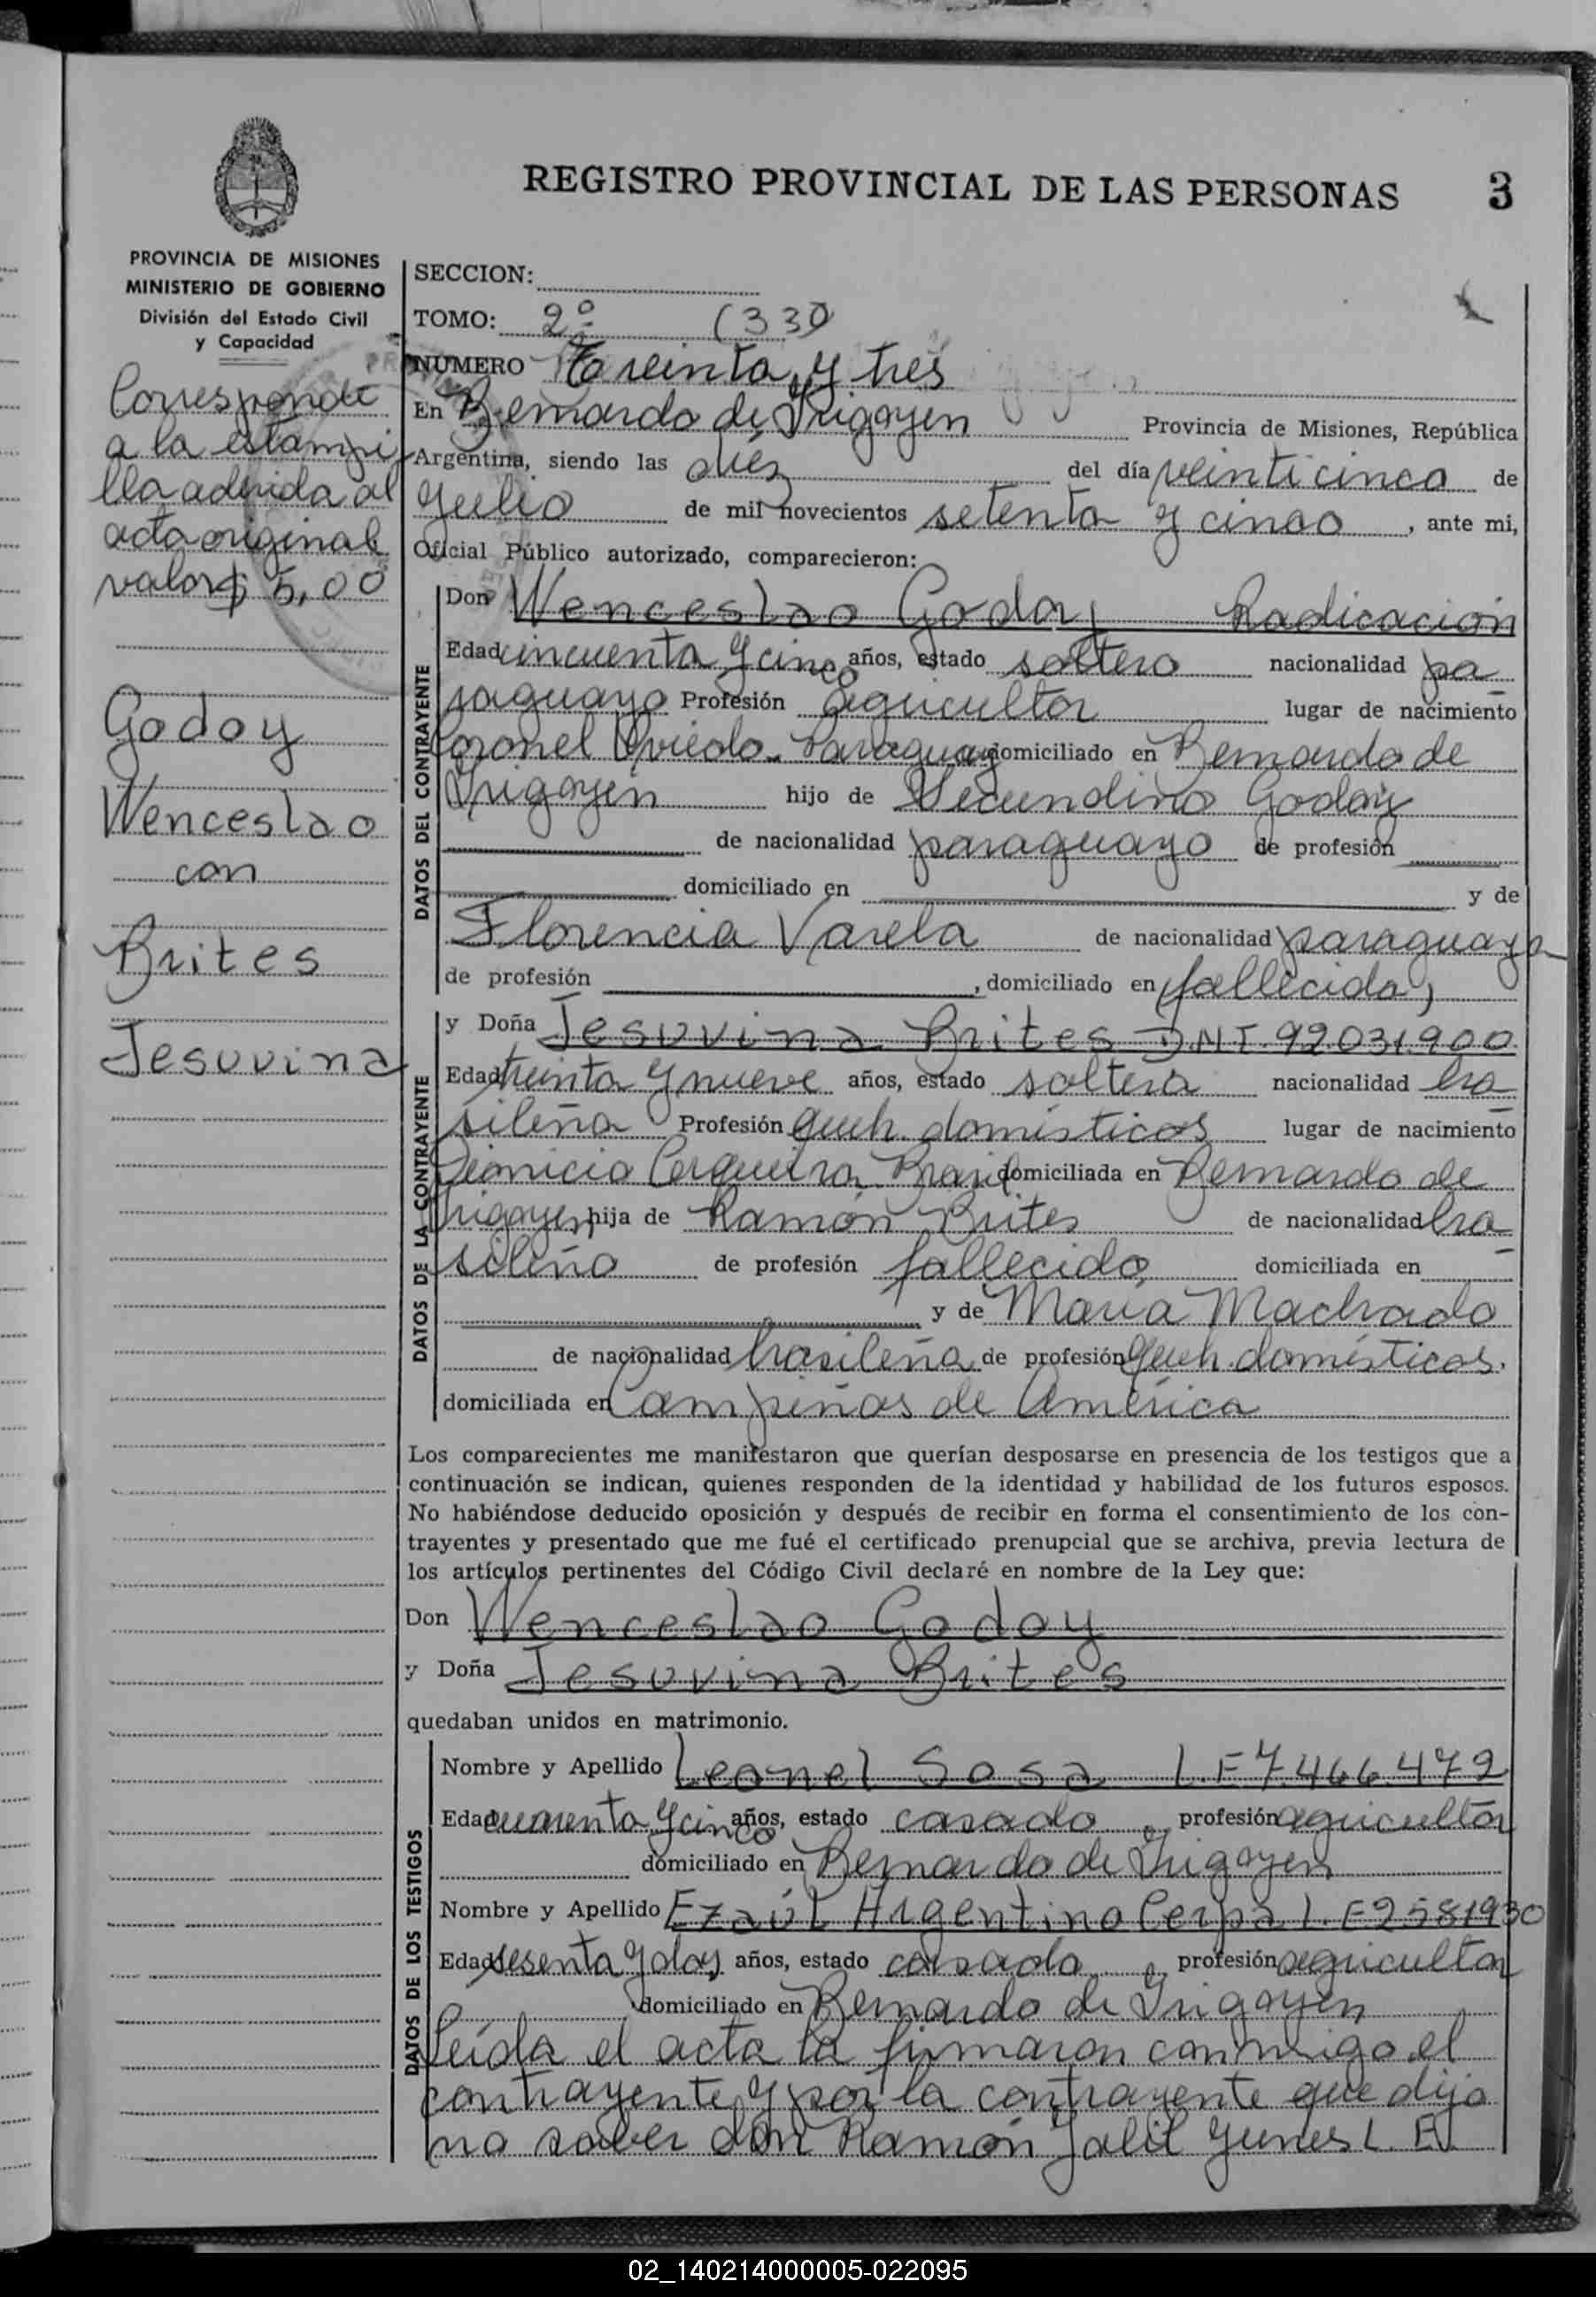 REGISTRO PROVINCIAL DE LAS PERSONAS 3
PROVINCIA DE MISIONES
MINISTERIO DE GOBIERNO
División del Estado Civil
y Capacidad
Corresponde
a la estampi
lla adherida al
acta original
valor $ 5,00
Godoy
Wenceslao
con
Brites
Jesuvina
SECCION:
TOMO: 2º (33)
NUMERO Treinta y tres
En Bernardo de Irigoyen Provincia de Misiones, República
Argentina, siendo las diez del día veinticinco de
Julio de mil novecientos setenta y cinco, ante mi,
Oficial Público autorizado, comparecieron:
DATOS DEL CONTRAYENTE
Don Wenceslao Godoy Radicación
Edad cincuenta y cinco años, estado soltero nacionalidad pa
raguayo Profesión agricultor lugar de nacimiento
Coronel Oviedo - Paraguay domiciliado en Bernardo de
Irigoyen hijo de Secundino Godoy
de nacionalidad paraguayo de profesión
domiciliado en y de
Florencia Varela de nacionalidad paraguaya
de profesión , domiciliado en (fallecida)
DATOS DE LA CONTRAYENTE
y Doña Jesuvina Brites D.N.I. 92031.900
Edad treinta y nueve años, estado soltera nacionalidad bra
sileña Profesión queh. domésticos lugar de nacimiento
Dionicio Cerqueira, Brasil domiciliada en Bernardo de
Irigoyen hija de Ramón Brites de nacionalidad bra
sileño de profesión fallecido domiciliada en
y de María Machado
de nacionalidad brasileña de profesión queh. domésticos.
domiciliada en Campiñas de América
Los comparecientes me manifestaron que querían desposarse en presencia de los testigos que a
continuación se indican, quienes responden de la identidad y habilidad de los futuros esposos.
No habiéndose deducido oposición y después de recibir en forma el consentimiento de los con-
trayentes y presentado que me fué el certificado prenupcial que se archiva, previa lectura de
los artículos pertinentes del Código Civil declaré en nombre de la Ley que:
Don Wenceslao Godoy
y Doña Jesuvina Brites
quedaban unidos en matrimonio.
DATOS DE LOS TESTIGOS
Nombre y Apellido Leonel Sosa L.E 7.466.479
Edad cuarenta y cinco años, estado casado, profesión agricultor
domiciliado en Bernardo de Irigoyen
Nombre y Apellido Ezaúl Argentino Cerpa L.E 2581930
Edad sesenta y dos años, estado casado, profesión agricultor
domiciliado en Bernardo de Irigoyen
Leída el acta la firmaron conmigo el
contrayente y por la contrayente que dijo
no saber don Ramón Jalil Yunes L. E.
02_140214000005-022095